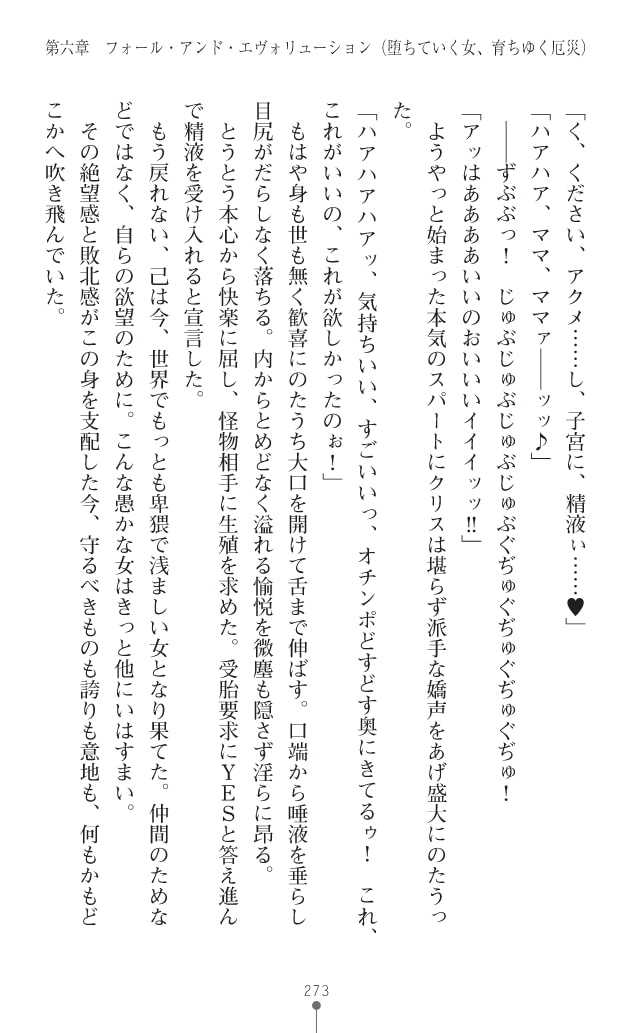 第六章　フォール・アンド・エヴォリューション（堕ちていく女、育ちゆく厄災）
「く、ください、アクメ……し、子宮に、精液ぃ……♥」
「ハアハア、ママ、ママァ――ッッ♪」
――ずぶぶっ！　じゅぶじゅぶじゅぶじゅぶぐぢゅぐぢゅぐぢゅぐぢゅ！
「アッはああああいいのおいいいイイイッッ!!」
ようやっと始まった本気のスパートにクリスは堪らず派手な嬌声をあげ盛大にのたうっ
た。
「ハアハアハアッ、気持ちいい、すごいいっ、オチンポどすどす奥にきてるゥ！　これ、
これがいいの、これが欲しかったのぉ！」
もはや身も世も無く歓喜にのたうち大口を開けて舌まで伸ばす。口端から唾液を垂らし
目尻がだらしなく落ちる。内からとめどなく溢れる愉悦を微塵も隠さず淫らに昂る。
とうとう本心から快楽に屈し、怪物相手に生殖を求めた。受胎要求にＹＥＳと答え進ん
で精液を受け入れると宣言した。
もう戻れない、己は今、世界でもっとも卑猥で浅ましい女となり果てた。仲間のためな
どではなく、自らの欲望のために。こんな愚かな女はきっと他にいはすまい。
その絶望感と敗北感がこの身を支配した今、守るべきものも誇りも意地も、何もかもど
こかへ吹き飛んでいた。
273